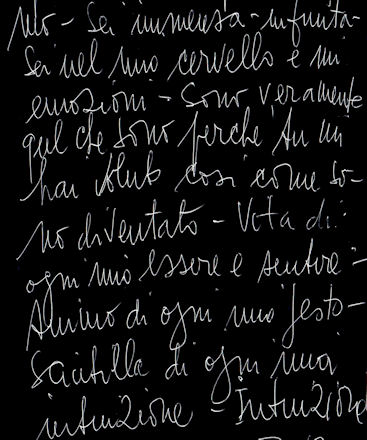 mio - Sei immensa - infinita -
Sei nel mio cervello e mi
emozioni - Sono veramente
quel che sono perché tu mi
hai voluto così come so-
no diventato - Vita di
ogni mio essere e sentire -
Attimo di ogni mio gesto -
Scintilla di ogni mia
intuizione - Intuizione